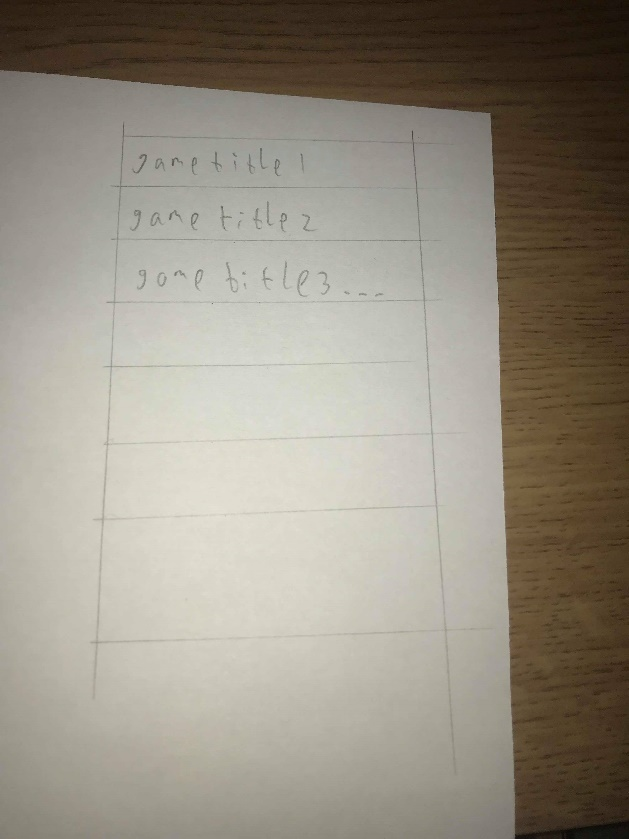 game title 1
game title 2
game title 3...